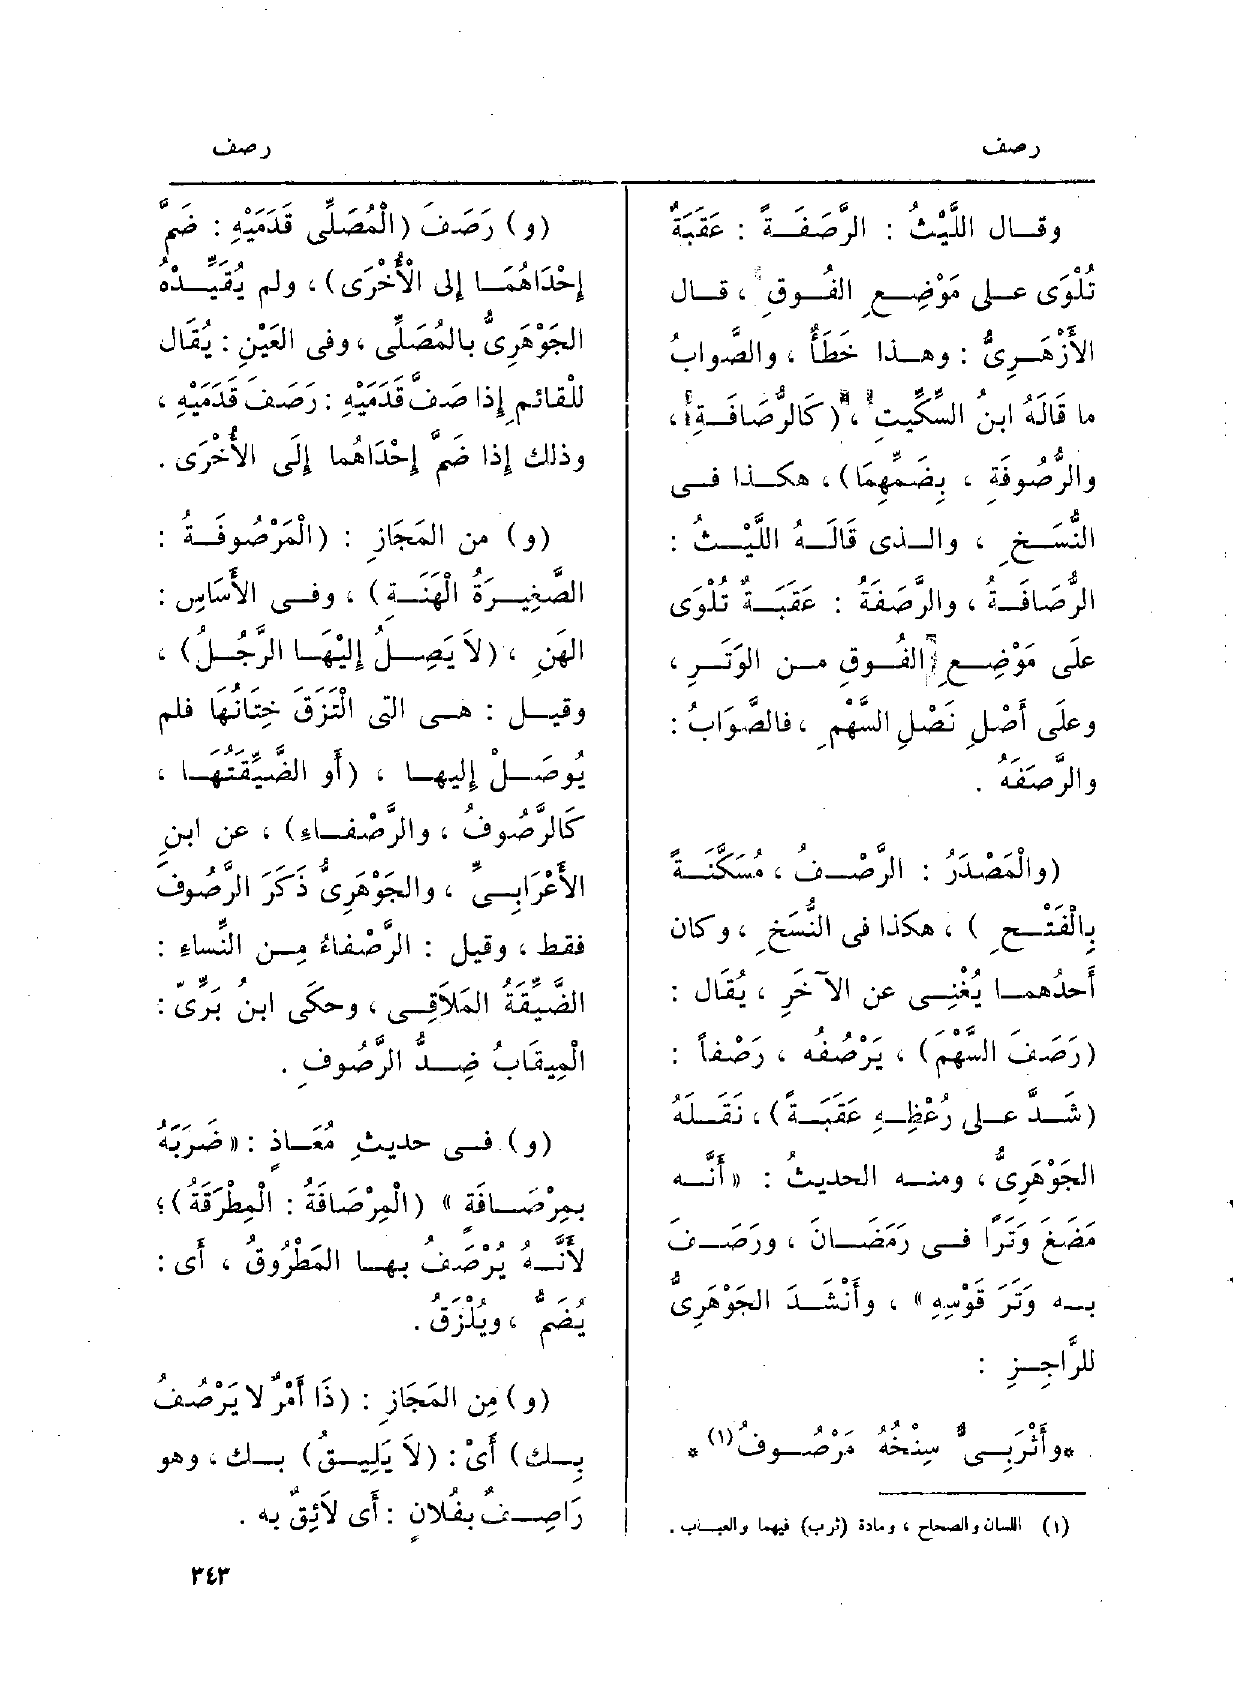 رصف
رصف
وقال اللَّيْثُ : الرَّصَفَةُ : عَقَبَةٌ
تُلْوَى على مَوْضِعِ الفُوقِ ، قال
الأَزْهَرِىُّ : وهذا خَطَأٌ ، والصَّوابُ
ما قَالَهُ ابنُ السِّكِّيتِ ، (كَالرُّصَافَةِ ،
والرُّصُوفَةِ ، بِضَمِّهِمَا) ، هكذا فى
النُّسَخِ ، والذى قَالَهُ اللَّيْثُ :
الرُّصَافَةُ ، والرَّصَفَةُ : عَقَبَةٌ تُلْوَى
علَى مَوْضِعِ الفُوقِ من الوَتَرِ ،
وعلَى أَصْلِ نَصْلِ السَّهْمِ ، فالصَّوَابُ :
والرَّصَفَة .
(والْمَصْدَرُ : الرَّصْفُ ، مُسَكَّنَةً
بِالْفَتْحِ ) ، هكذا فى النُّسَخِ ، وكان
أَحدُهما يُغْنِى عن الآخَرِ ، يُقَال :
(رَصَفَ السَّهْمَ) ، يَرْصُفُه ، رَصْفاً :
(شَدَّ على رُعْظِهِ عَقَبَةً) ، نَقَلَهُ
الجَوْهَرِىُّ ، ومنه الحديثُ : « أَنَّه
مَضَغَ وَتَرًا فى رَمَضَانَ ، ورَصَفَ
به وَتَرَ قَوْسِهِ » ، وأَنْشَدَ الجَوْهَرِىُّ
للرَّاجِزِ :
*وأَثْرَبِىٌّ سِنْخُهُ مَرْصُوفُ(١) *
(١) اللسان والصحاح ، ومادة (ثرب) فيهما والعباب .
(و) رَصَفَ (الْمُصَلِّى قَدَمَيْهِ : ضَمَّ
إِحْدَاهُمَا إِلى الْأُخْرَى) ، ولم يُقَيِّدْهُ
الجَوْهَرِىُّ بالمُصَلِّى ، وفى العَيْنِ : يُقَال
للْقائمِ إِذا صَفَّ قَدَمَيْهِ : رَصَفَ قَدَمَيْهِ ،
وذلك إِذا ضَمَّ إِحْدَاهُما إِلَى الأُخْرَى .
(و) من المَجَازِ : (الْمَرْصُوفَةُ :
الصَّغِيرَةُ الْهَنَةِ) ، وفى الأَسَاسِ :
الهَنِ ، (لاَ يَصِلُ إِلَيْهَا الرَّجُلُ) ،
وقيل : هى التى الْتَزَقَ خِتَانُهَا فلم
يُوصَلْ إِليها ، (أَو الضَّيِّقَتُهَا ،
كَالرَّصُوفُ ، والرَّصْفَاءِ) ، عن ابنِ
الأَعْرَابِىِّ ، والجَوْهَرِىُّ ذَكَرَ الرَّصُوفَ
فقط ، وقيل : الرَّصْفَاءُ مِن النِّساء :
الضَّيِّقَةُ المَلاَقِى ، وحكَى ابن بَرِّىّ :
الْمِيقَابُ ضِدُّ الرَّصُوفِ .
(و) فى حديثِ مُعَاذٍ : « ضَرَبَهُ
بِمِرْصَافَةٍ » (الْمِرْصَافَةُ : الْمِطْرَقَةُ) ؛
لأَنَّهُ يُرْصَفُ بها المَطْرُوقُ ، أَى :
يُضَمُّ ، ويُلْزَقُ .
(و) مِن المَجَازِ : (ذَا أَمْرٌ لا يَرْصُفُ
بِك) أَىْ : (لاَ يَلِيقُ) بك ، وهو
رَاصِفٌ بفُلانٍ : أَى لاَئِقٌ به .
٣٤٣